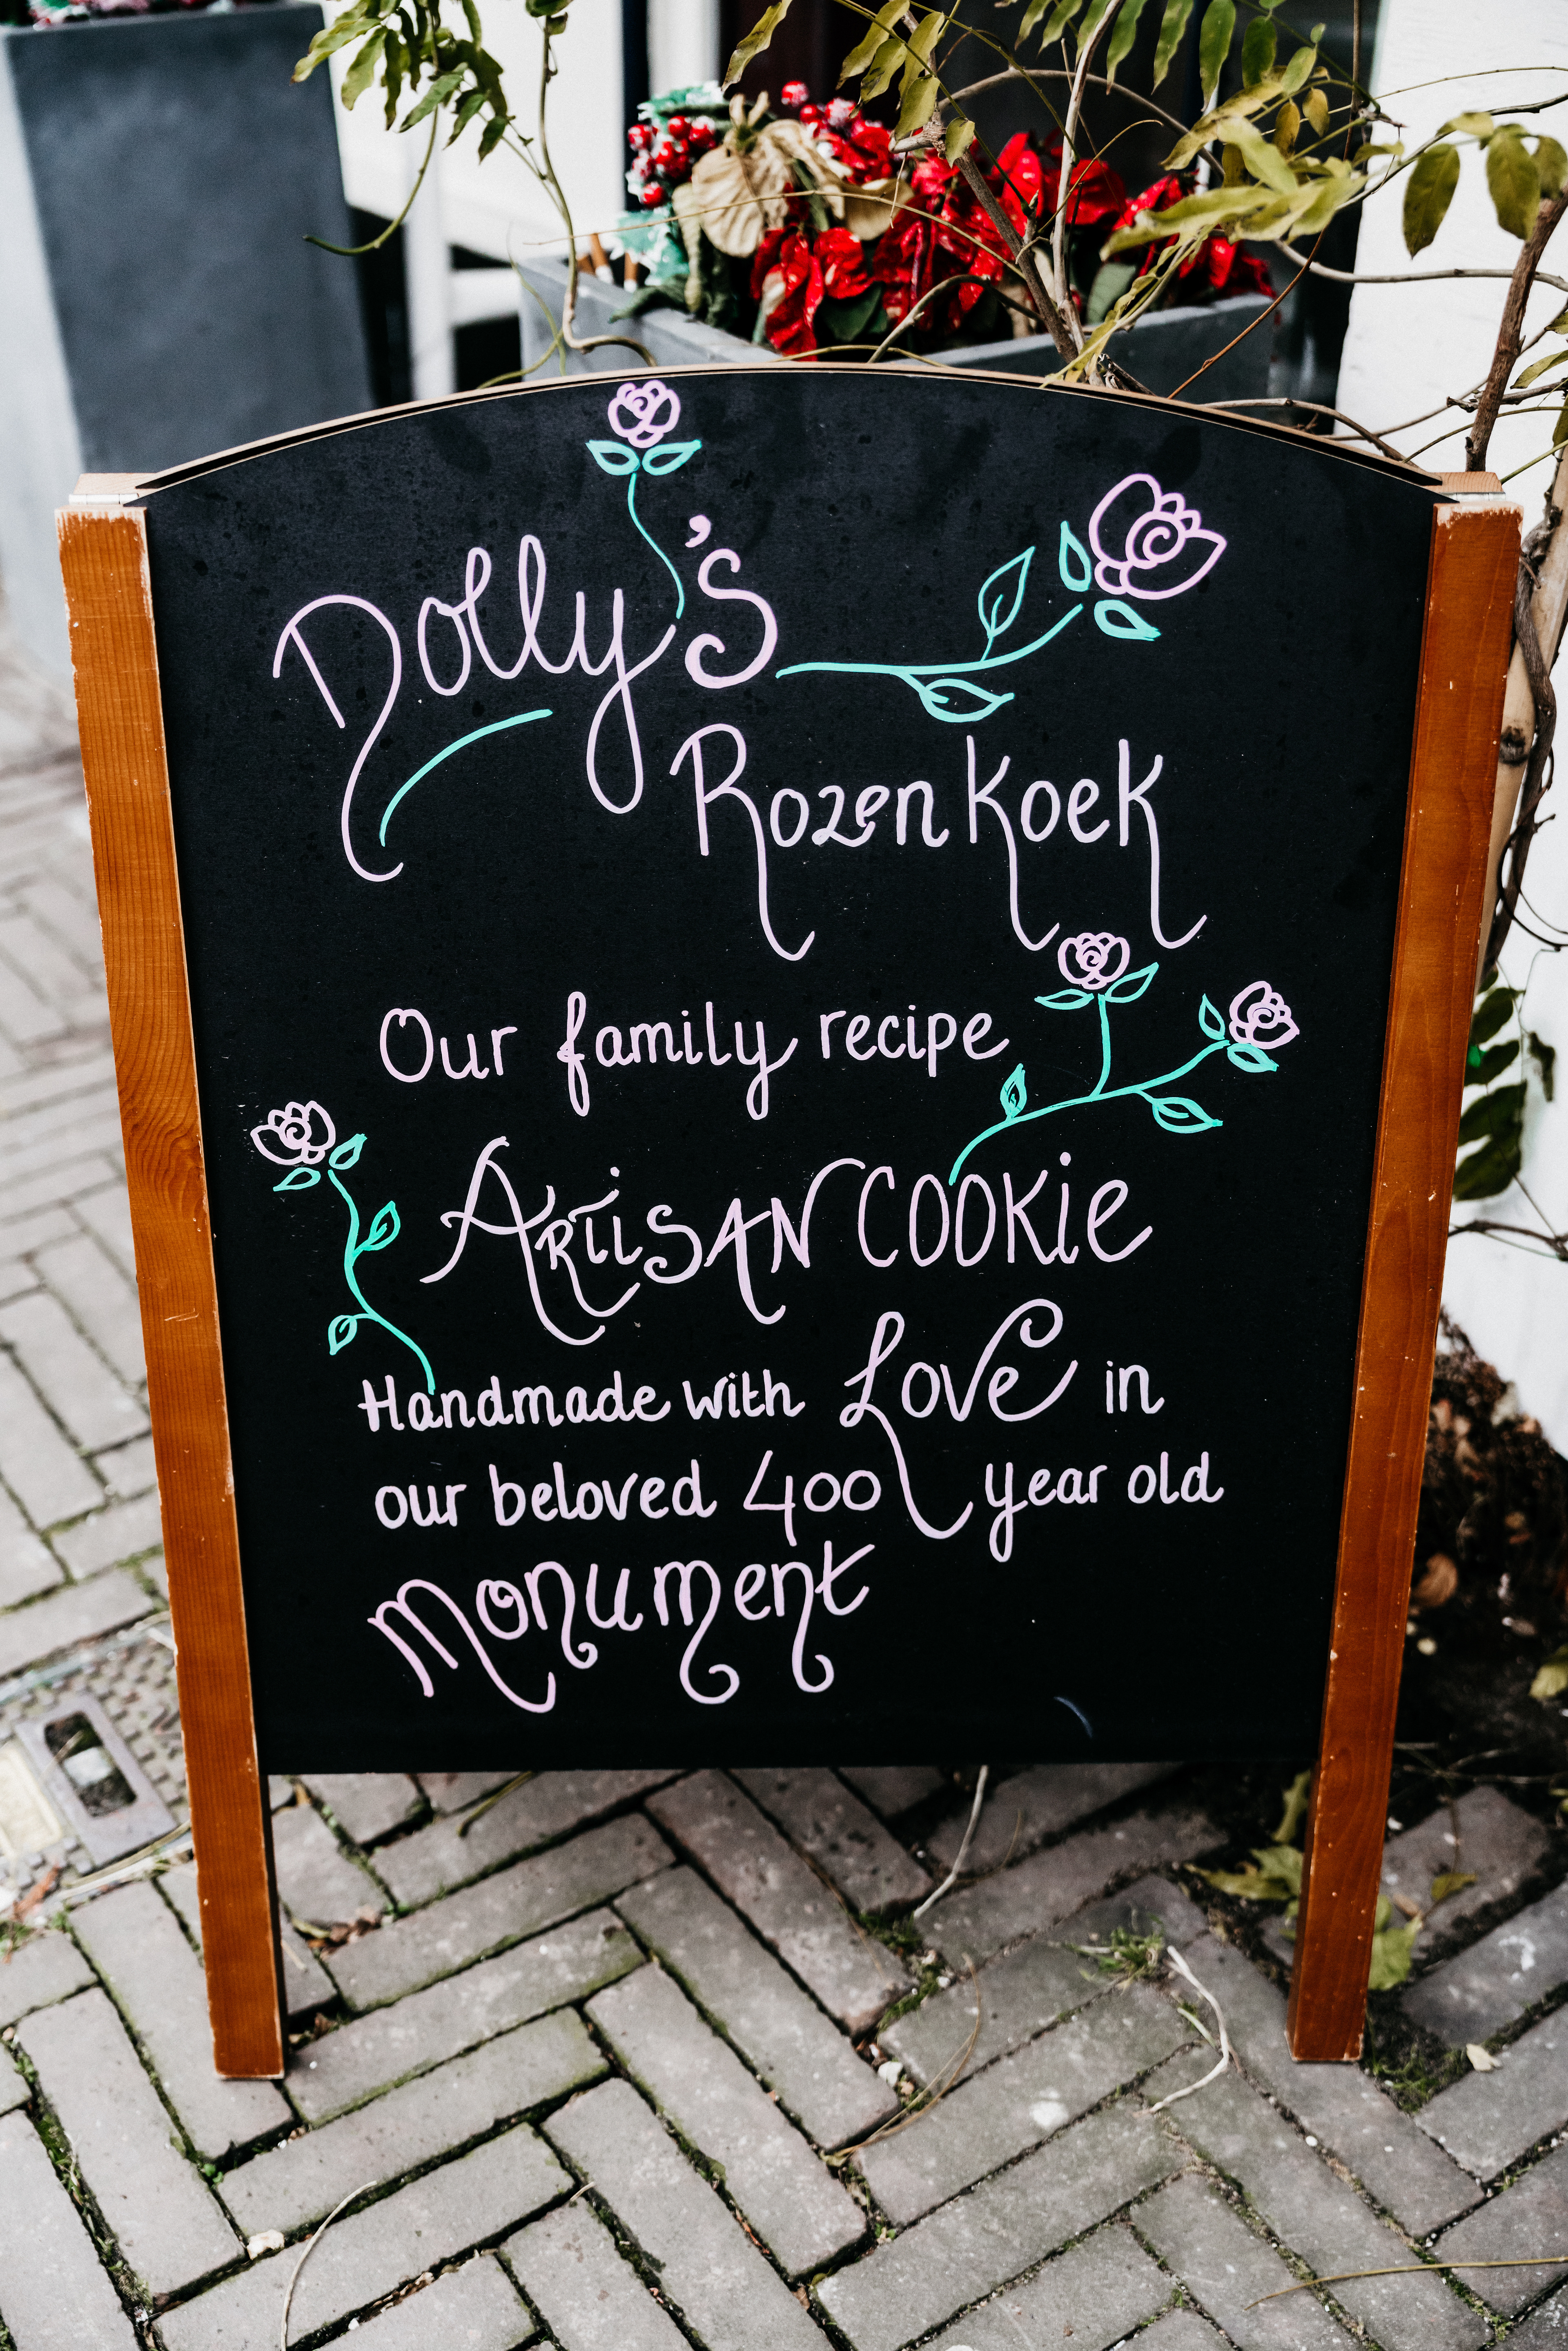 Dolly's
Rozenkoek
Our family recipe
Artisan Cookie
Handmade with Love in
our beloved 400 year old
Monument